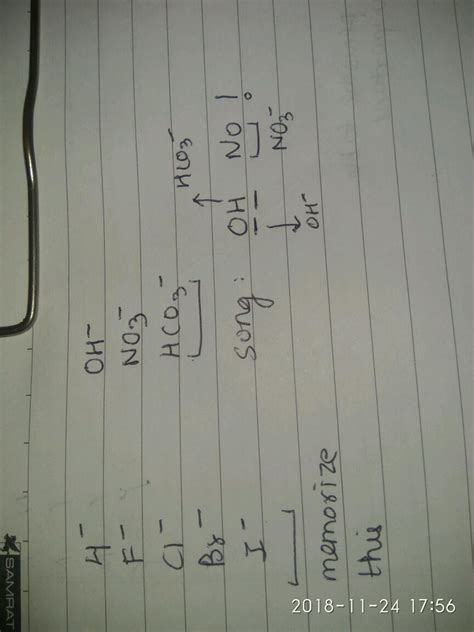 H⁻ OH⁻
F⁻ NO₃⁻
Cl⁻ HCO₃⁻ HCO₃⁻
Br⁻ ↑
I⁻ Song: OH NO!
↓ NO₃⁻
OH⁻
memorize
this
SAMRAT
2018-11-24 17:56